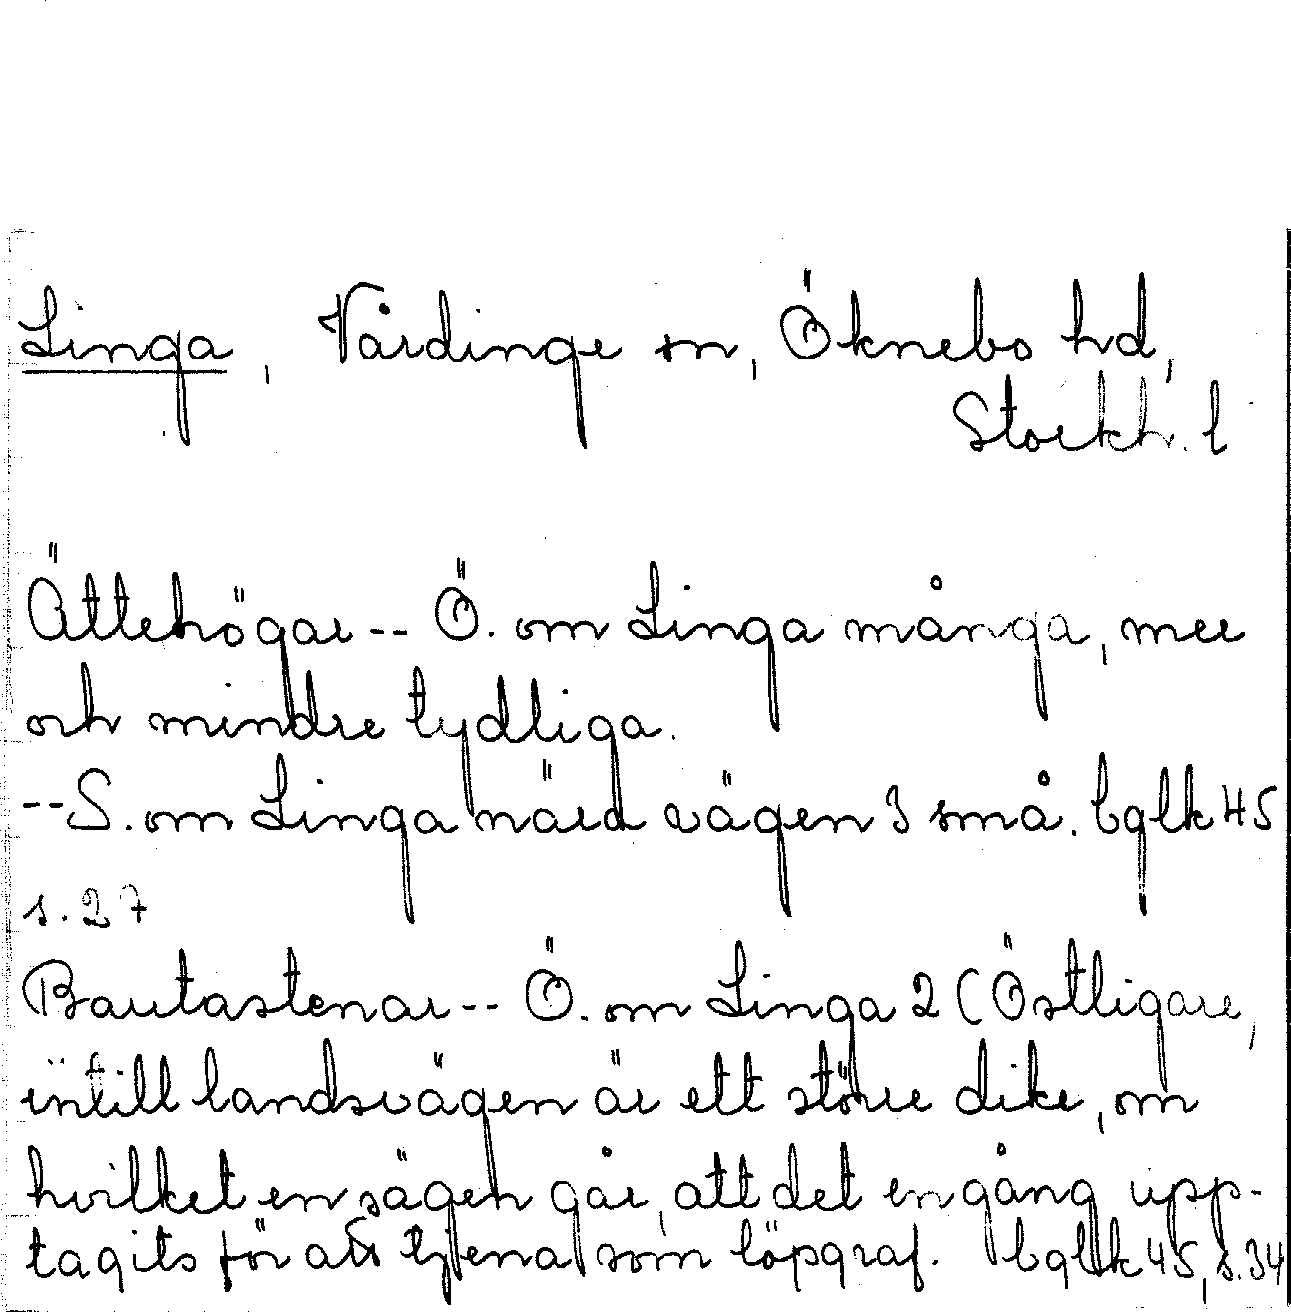 Linga, Vårdinge sn, Öknebo hd,
Stockh. l
Ättehögar -- Ö. om Linga många, mer
och mindre tydliga.
-- S. om Linga närd vägen 3 små. bglk 45
s. 27
Bautastenar -- Ö. om Linga 2 (Östligare,
intill landsvägen är ett större dike, om
hvilket en sägen går, att det en gång upp-
tagits för att tjena som löpgraf. bglk 45, s. 34